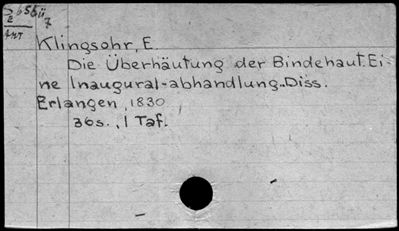 Klingsohr, E.
Die Überhäutung der Bindehaut. Ei-
ne Inaugural-abhandlung.-Diss.
Erlangen, 1830
36s., 1 Taf.